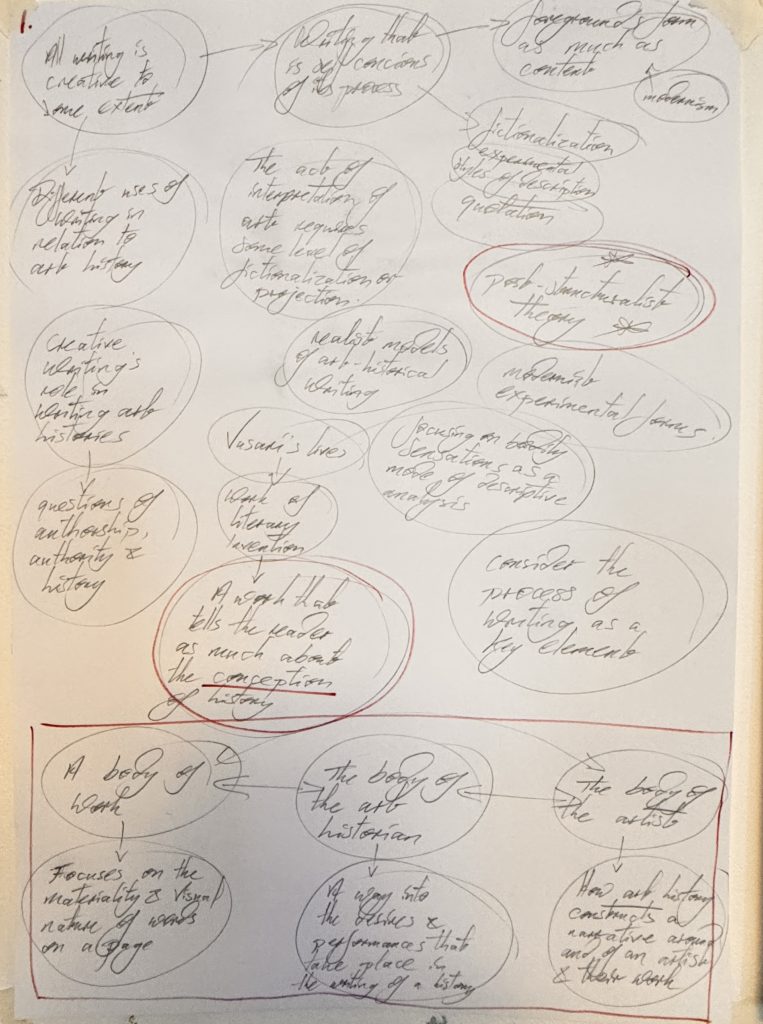 1.
All writing is
creative to
some extent
Writing that
is self concious
of its process
foreground's form
as much as
content
modernism
fictionalization
experimental
styles of description
quotation
Different uses of
writing in
relation to
art history
The act of
interpretation of
art requires
some level of
fictionalization or
projection.
post-structuralist
theory
creative
writing's
role in
writing art
histories
realist models
of art-historical
writing
modernist
experimental forms.
Vasari's lives
focusing on bodily
sensations as a
mode of descriptive
analysis
questions of
authorship,
authority &
history
work of
literary
invention
A work that
tells the reader
as much about
the conception
of history
consider the
process of
writing as a
key element
A body of
work
The body of
the art
historian
The body of
the artist
Focuses on the
materiality & visual
nature of words
on a page
A way into
the desires &
performances that
take place in
the writing of a history
How art history
constructs a
narrative around
and of an artist
& their work